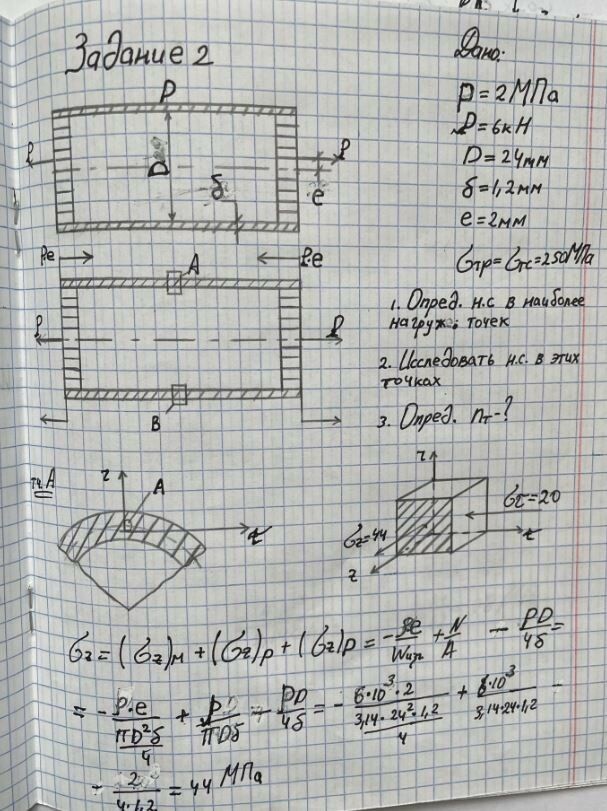 Задание 2
Дано:
p = 2 МПа
P = 6 кН
D = 24 мм
δ = 1,2 мм
e = 2 мм
σтр = σтс = 250 МПа
1. Опред. н.с в наиболее
нагруж. точек
2. Исследовать н.с. в этих
точках
3. Опред. nт - ?
P
P
D
δ
P
e
P·e
A
P·e
P
P
B
тч. A
r
A
t
r
σt = 20
σz = 44
t
z
σz = (σz)м + (σz)p + (σz)p = - Pe/Wизг + N/A - PD/4δ =
= - P·e/(πD²δ/4) + P/πDδ - PD/4δ = - 6·10³·2/(3,14·24²·1,2/4) + 6·10³/3,14·24·1,2 -
- 2/4·1,2 = 44 МПа